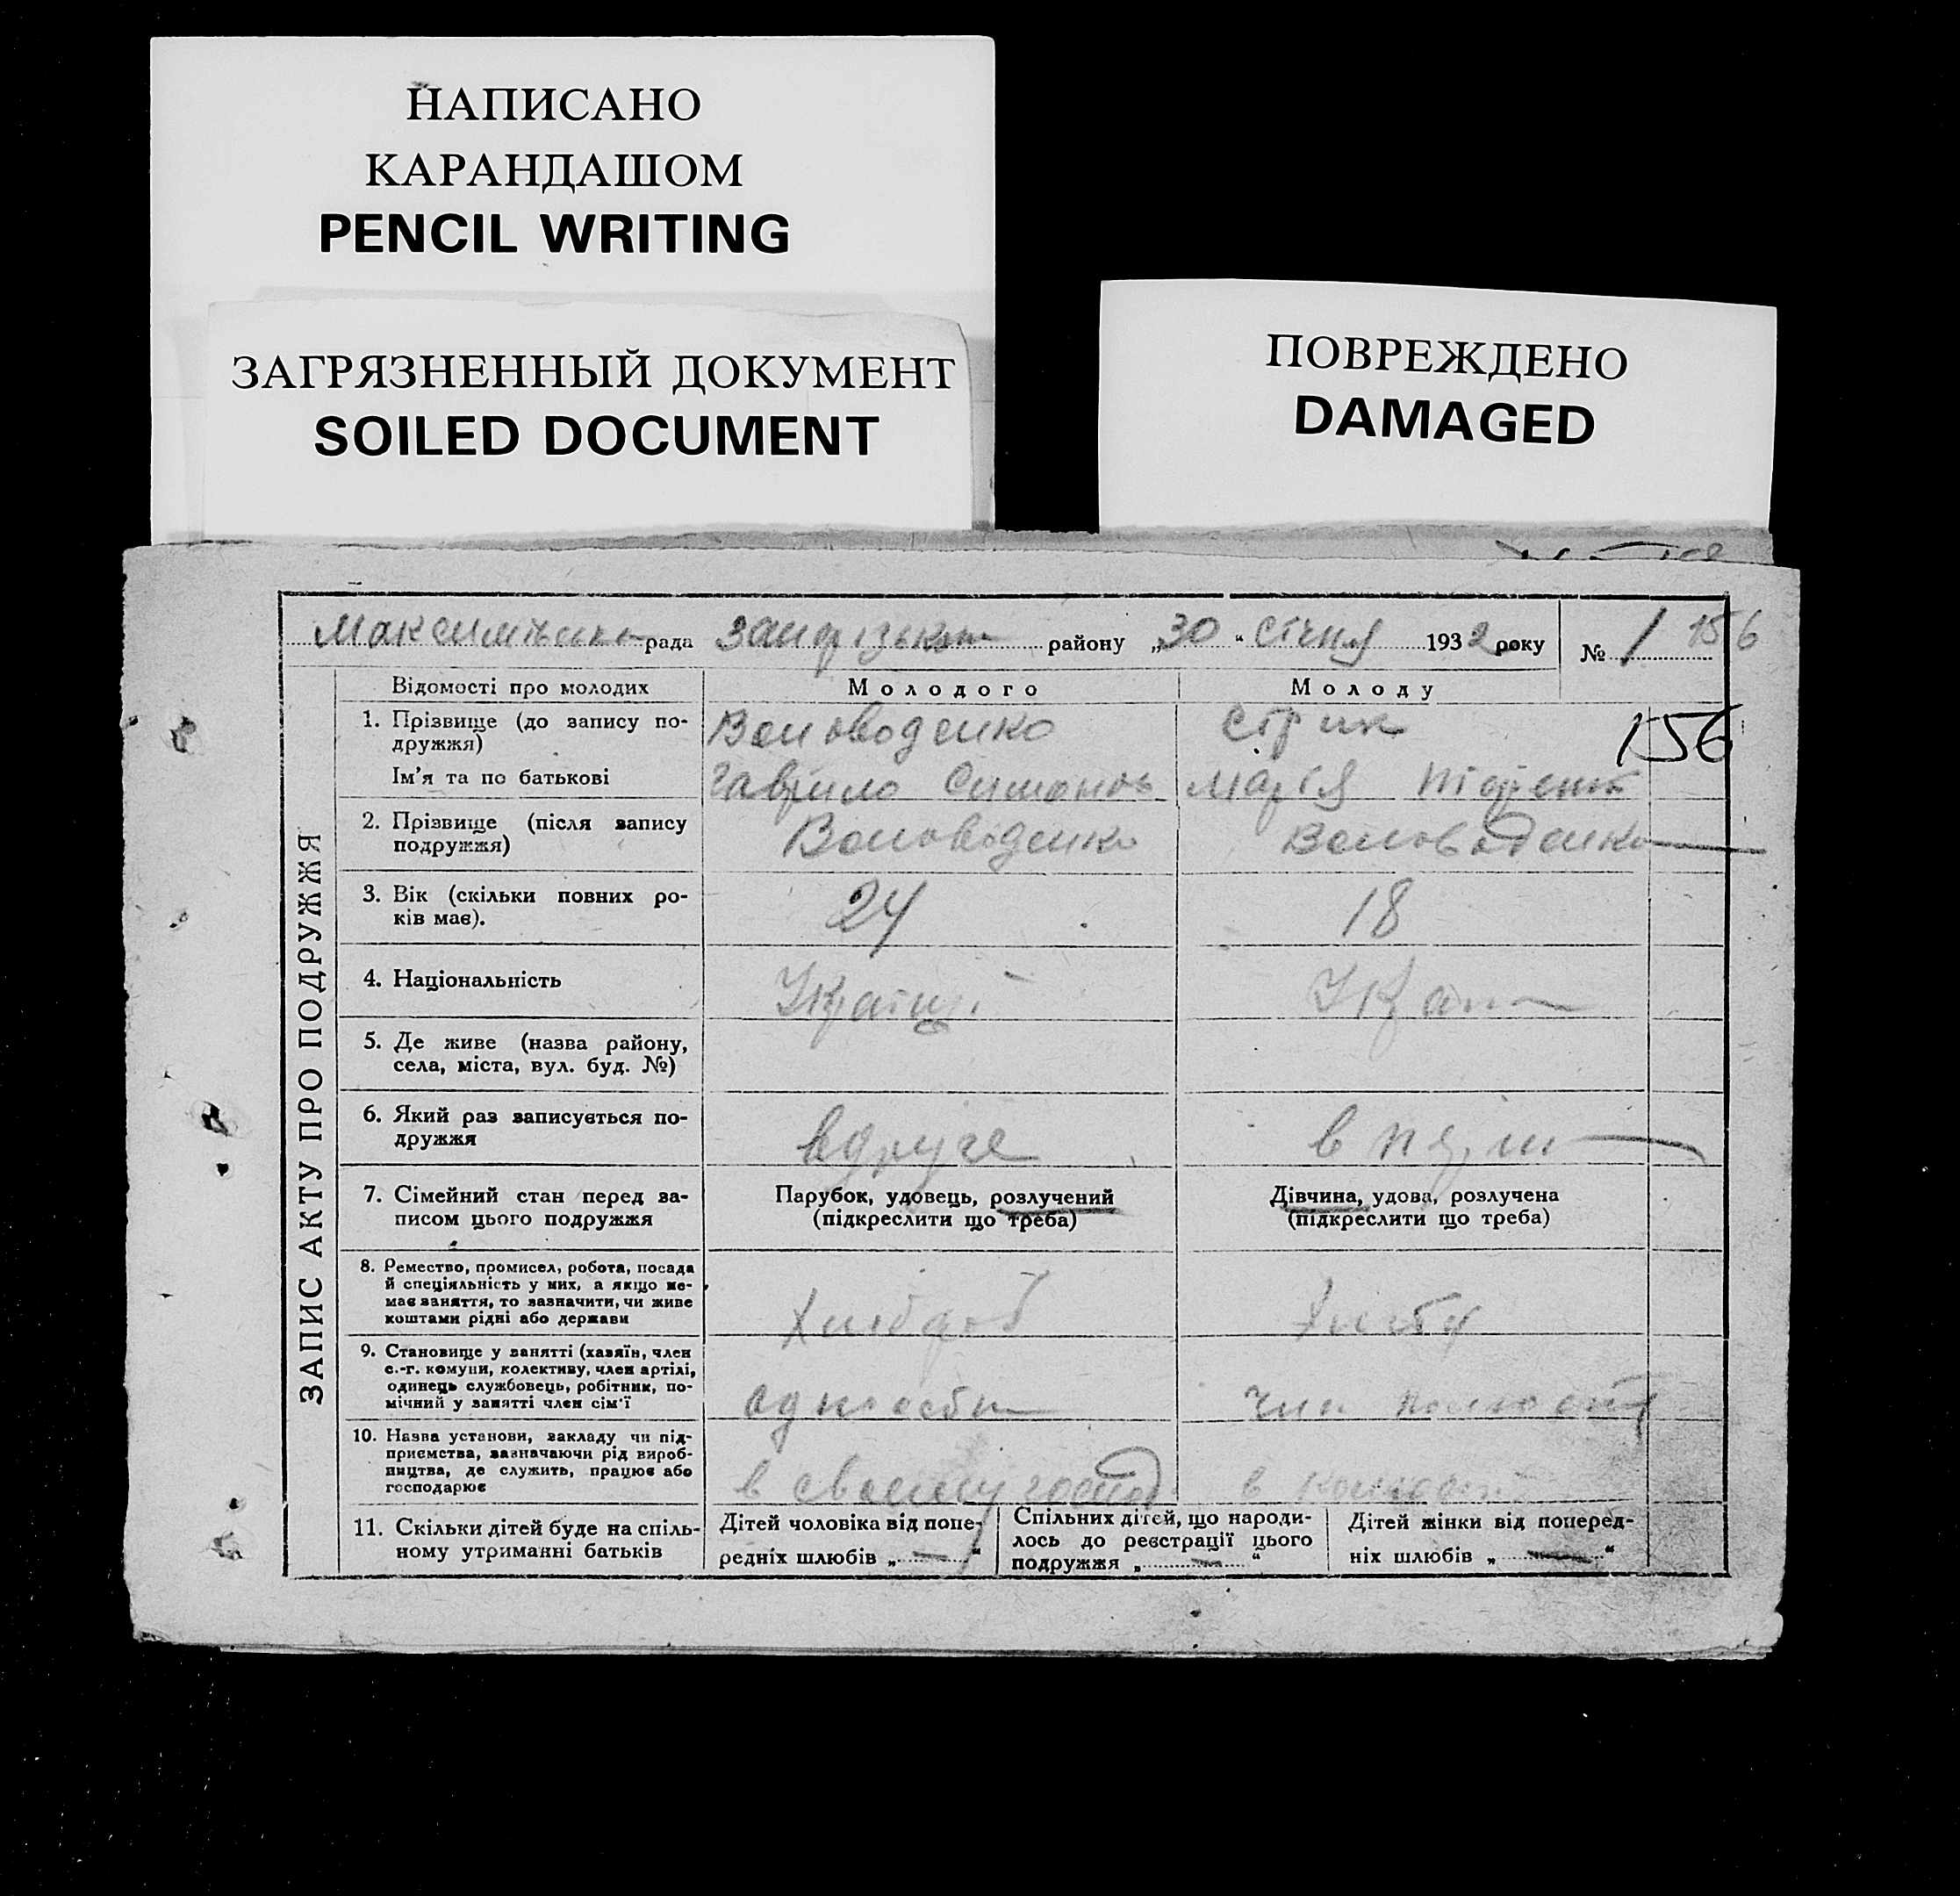 НАПИСАНО
КАРАНДАШОМ
PENCIL WRITING
ЗАГРЯЗНЕННЫЙ ДОКУМЕНТ
SOILED DOCUMENT
ПОВРЕЖДЕНО
DAMAGED
рада району „30“ Січня 1932 року № 1 156
ЗАПИС АКТУ ПРО ПОДРУЖЖЯ
Відомості про молодих Молодого Молоду
156
1. Прізвище (до запису по-
дружжя)
Стрик
Ім'я та по батькові Гаврило Симонов Марія
2. Прізвище (після запису
подружжя)
3. Вік (скільки повних ро-
ків має). 24 18
4. Національність
5. Де живе (назва району,
села, міста, вул. буд. №)
6. Який раз записується по-
дружжя вдруге в
7. Сімейний стан перед за-
писом цього подружжя
Парубок, удовець, розлучений
(підкреслити що треба)
Дівчина, удова, розлучена
(підкреслити що треба)
8. Ремество, промисел, робота, посада
й спеціяльність у них, а якщо не-
має заняття, то зазначити, чи живе
коштами рідні або держави
9. Становище у занятті (хазяїн, член
с.-г. комуни, колективу, член артілі,
одинець службовець, робітник, по-
мічний у занятті член сім'ї
10. Назва установи, закладу чи під-
приємства, зазначаючи рід вироб-
ництва, де служить, працює або
господарює
в своєму господ в
11. Скільки дітей буде на спіль-
ному утриманні батьків
Дітей чоловіка від попе-
редніх шлюбів „ — “
Спільних дітей, що народи-
лось до реєстрації цього
подружжя „ — “
Дітей жінки від поперед-
ніх шлюбів „ — “